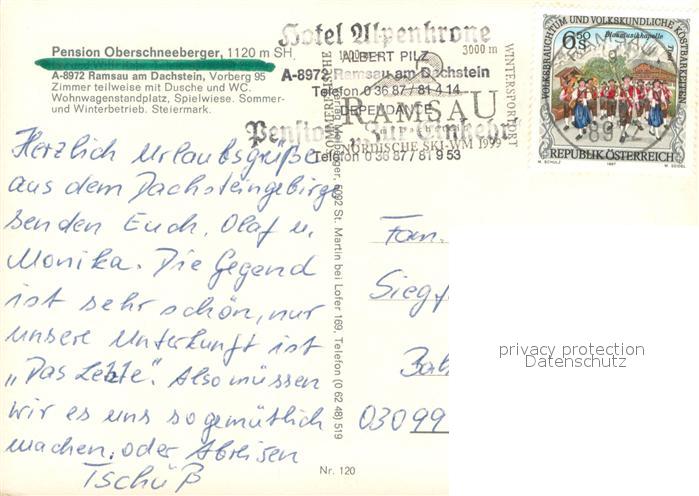 Pension Oberschneeberger, 1120 m SH.
A-8972 Ramsau am Dachstein, Vorberg 95
Zimmer teilweise mit Dusche und WC.
Wohnwagenstandplatz, Spielwiese. Sommer-
und Winterbetrieb. Steiermark.
Hotel Alpenkrone
ALBERT PILZ
A-8972 Ramsau am Dachstein
Telefon 0 36 87 / 81 4 14
DEPENDANCE
Pension "Zur Einkehr"
Telefon 0 36 87 / 81 9 53
3000 m
RAMSAU
NORDISCHE SKI-WM 1999
WINTERSPORTORT
VOLKSBRAUCHTUM UND VOLKSKUNDLICHE KOSTBARKEITEN
6,50 S
Blasmusikkapelle
REPUBLIK ÖSTERREICH
M. SCHULZ 1997 M. SEIDEL
Herzlich Urlaubsgrüße
aus dem Dachsteingebirge
senden Euch, Olaf u.
Monika. Die Gegend
ist sehr schön, nur
unsere Unterkunft ist
„Das Letzte". Also müssen
wir es uns so gemütlich
machen, oder Abreisen
Tschüß
5092 St. Martin bei Lofer 169, Telefon (0 62 48) 519
Nr. 120
Fam.
Siegf
03099
privacy protection
Datenschutz